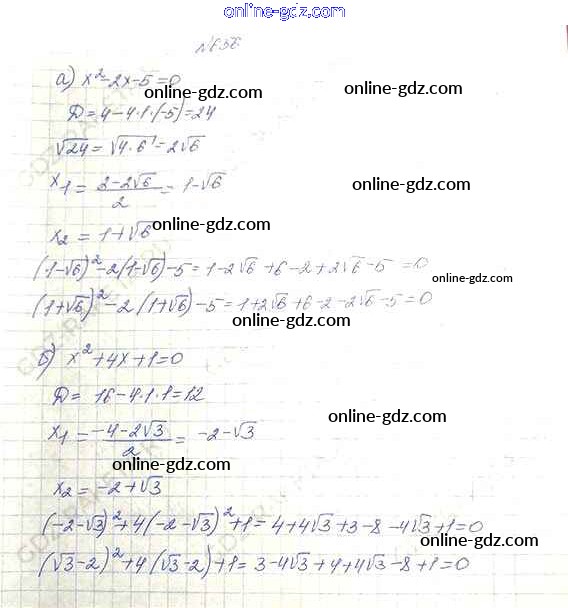 online-gdz.com
№656
а) x² - 2x - 5 = 0
online-gdz.com
online-gdz.com
Д = 4 - 4·1·(-5) = 24
√24 = √4·6 = 2√6
x₁ = (2 - 2√6)/2 = 1 - √6
online-gdz.com
x₂ = 1 + √6
online-gdz.com
(1-√6)² - 2(1-√6) - 5 = 1 - 2√6 + 6 - 2 + 2√6 - 5 = 0
online-gdz.com
(1+√6)² - 2(1+√6) - 5 = 1 + 2√6 + 6 - 2 - 2√6 - 5 = 0
online-gdz.com
б) x² + 4x + 1 = 0
Д = 16 - 4·1·1 = 12
online-gdz.com
x₁ = (-4 - 2√3)/2 = -2 - √3
online-gdz.com
x₂ = -2 + √3
(-2-√3)² + 4(-2-√3) + 1 = 4 + 4√3 + 3 - 8 - 4√3 + 1 = 0
online-gdz.com
(√3-2)² + 4(√3-2) + 1 = 3 - 4√3 + 4 + 4√3 - 8 + 1 = 0